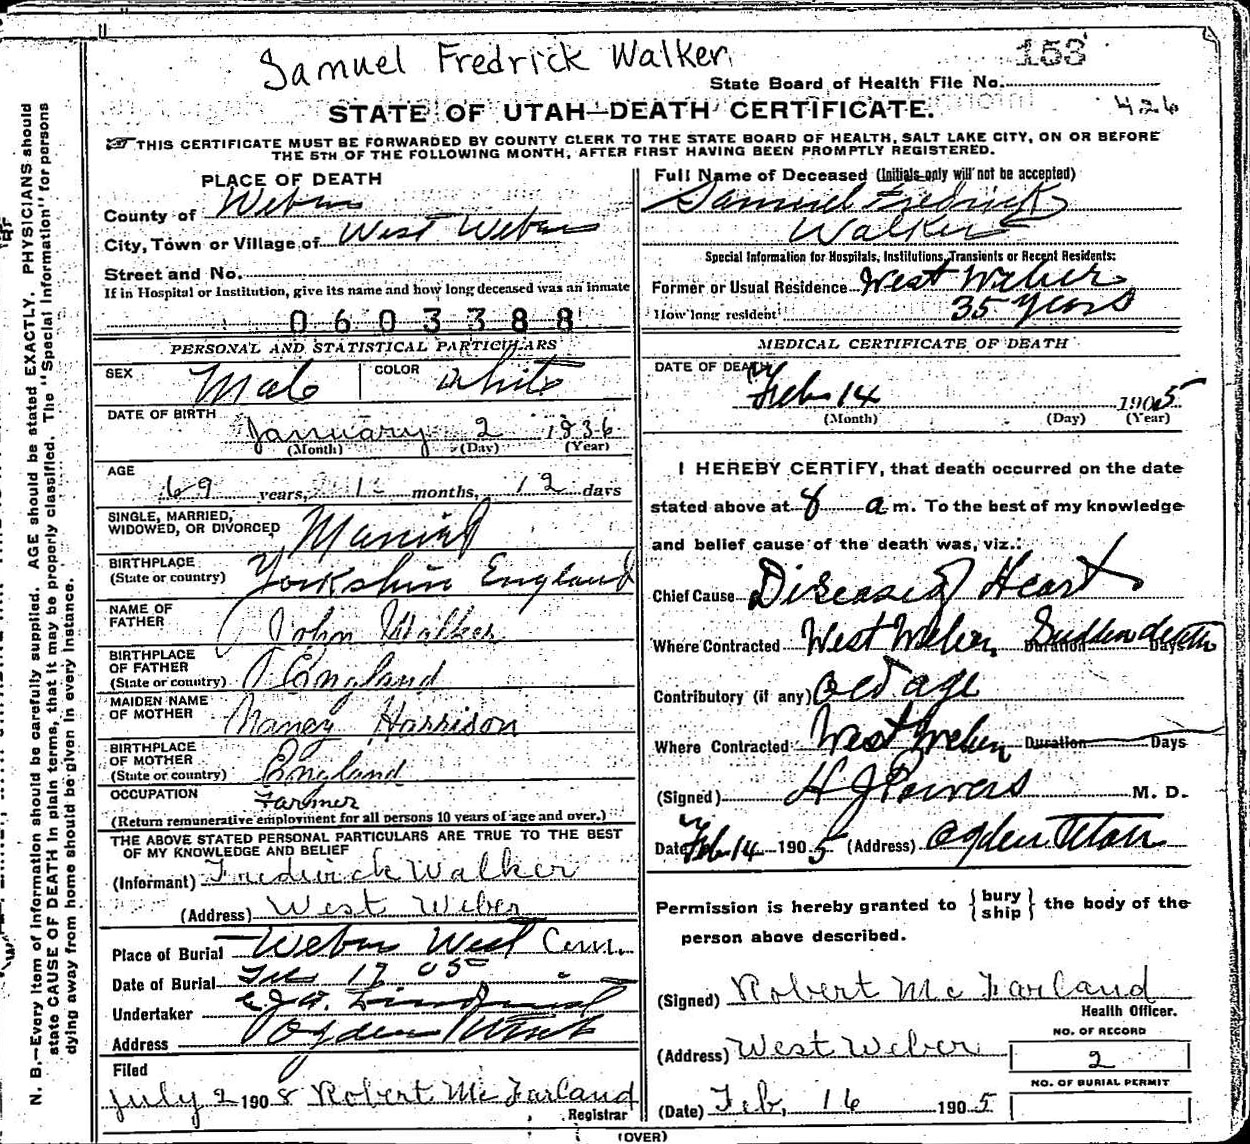 Samuel Fredrick Walker
153
State Board of Health File No.
STATE OF UTAH—DEATH CERTIFICATE.
426
THIS CERTIFICATE MUST BE FORWARDED BY COUNTY CLERK TO THE STATE BOARD OF HEALTH, SALT LAKE CITY, ON OR BEFORE
THE 5TH OF THE FOLLOWING MONTH, AFTER FIRST HAVING BEEN PROMPTLY REGISTERED.
N. B.—Every item of information should be carefully supplied. AGE should be stated EXACTLY. PHYSICIANS should
state CAUSE OF DEATH in plain terms, that it may be properly classified. The "Special Information" for persons
dying away from home should be given in every instance.
PLACE OF DEATH
County of Weber
City, Town or Village of West Weber
Street and No.
If in Hospital or Institution, give its name and how long deceased was an inmate
0603388
PERSONAL AND STATISTICAL PARTICULARS
SEX Male COLOR White
DATE OF BIRTH
January 2 1836
(Month) (Day) (Year)
AGE
69 years, 1 months, 12 days
SINGLE, MARRIED,
WIDOWED, OR DIVORCED Married
BIRTHPLACE
(State or country) Yorkshire England
NAME OF
FATHER John Walker
BIRTHPLACE
OF FATHER
(State or country) England
MAIDEN NAME
OF MOTHER Nancy Harrison
BIRTHPLACE
OF MOTHER
(State or country) England
OCCUPATION Farmer
(Return remunerative employment for all persons 10 years of age and over.)
THE ABOVE STATED PERSONAL PARTICULARS ARE TRUE TO THE BEST
OF MY KNOWLEDGE AND BELIEF
(Informant) Fredrick Walker
(Address) West Weber
Place of Burial Weber West Cem.
Date of Burial Feb 17 05
Undertaker
Address Ogden Utah
Filed
July 2 1908 Robert McFarland
Registrar
Full Name of Deceased (Initials only will not be accepted)
Samuel Fredrick
Walker
Special Information for Hospitals, Institutions, Transients or Recent Residents:
Former or Usual Residence West Weber
How long resident 35 years
MEDICAL CERTIFICATE OF DEATH
DATE OF DEATH
Feb 14 1905
(Month) (Day) (Year)
I HEREBY CERTIFY, that death occurred on the date
stated above at 8 a m. To the best of my knowledge
and belief cause of the death was, viz.:
Chief Cause Disease of Heart
Where Contracted West Weber Duration Sudden death Days
Contributory (if any) Old age
Where Contracted West Weber Duration Days
(Signed) H J Powers M. D.
Date Feb 14 1905 (Address) Ogden Utah
Permission is hereby granted to { bury ship } the body of the
person above described.
(Signed) Robert McFarland
Health Officer.
(Address) West Weber
NO. OF RECORD
2
NO. OF BURIAL PERMIT
(Date) Feb, 16 1905
(OVER)